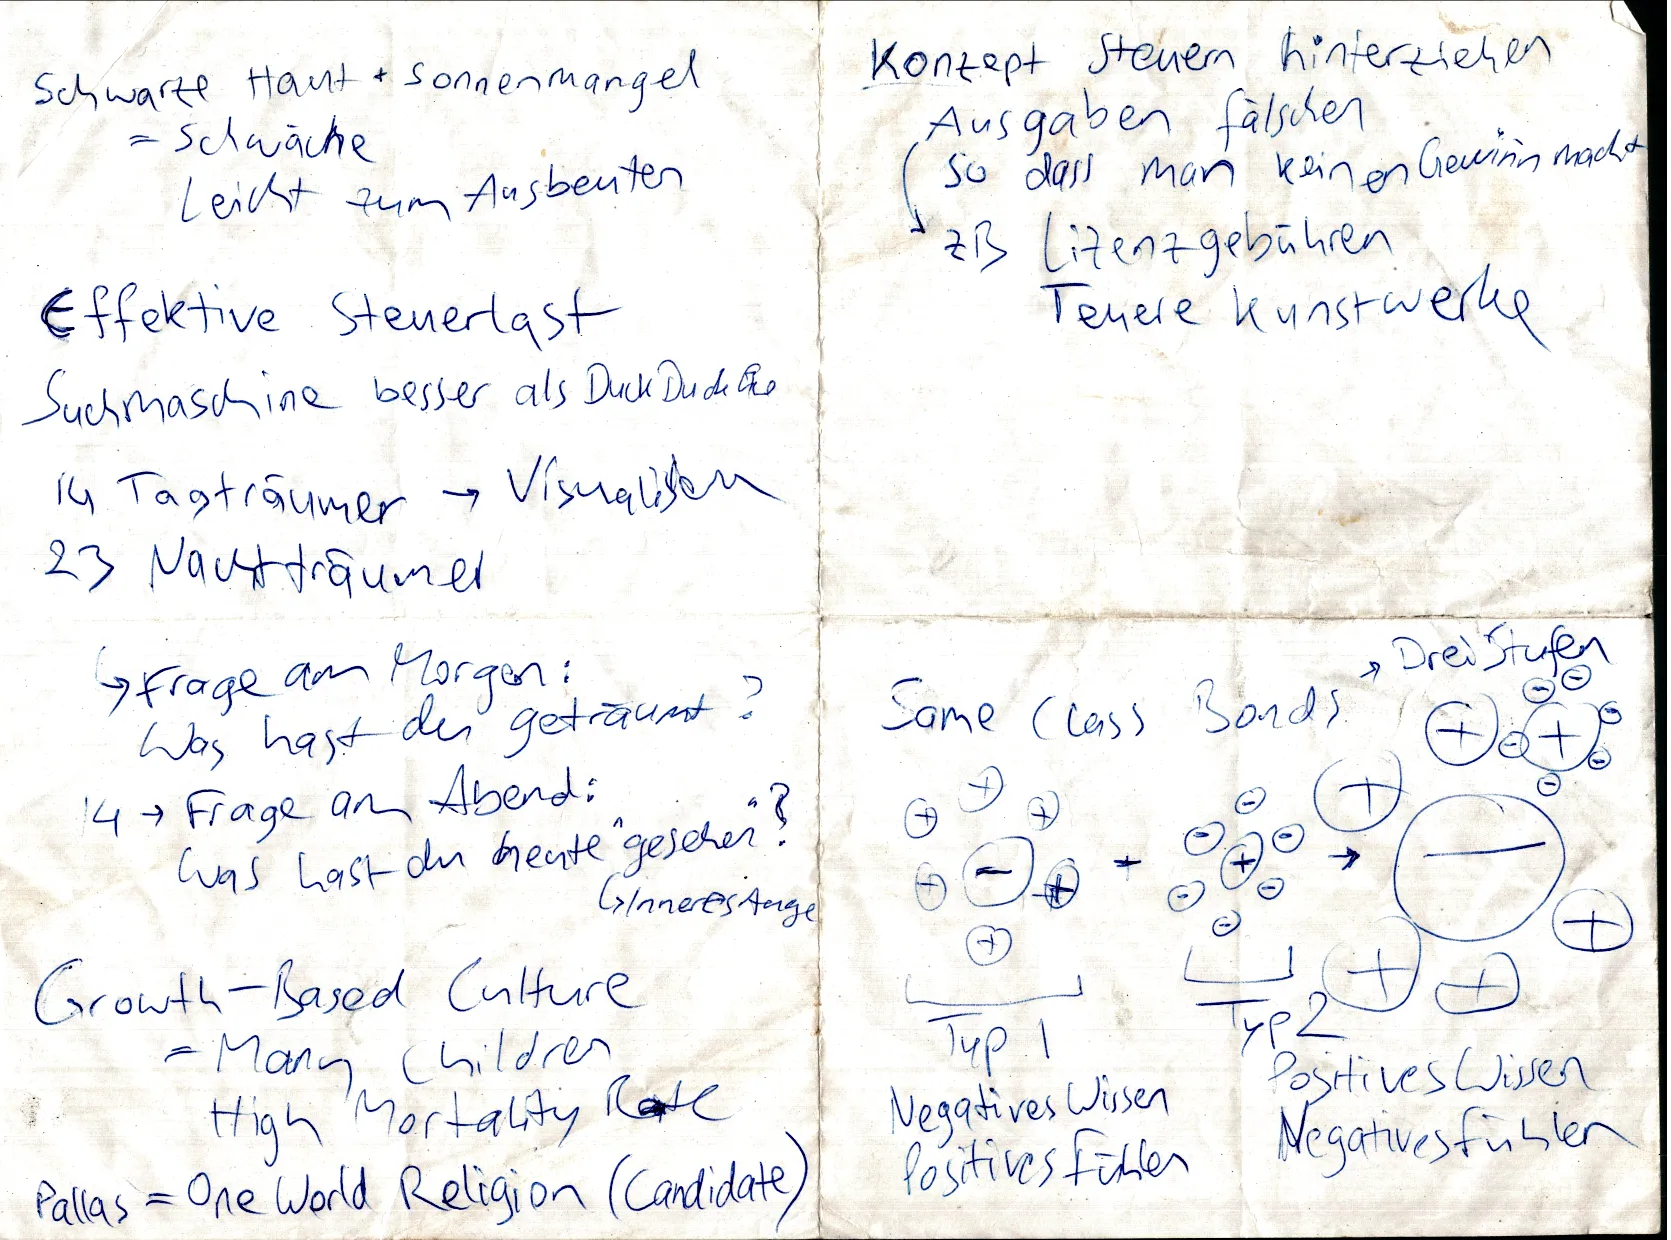 Schwarze Haut + Sonnenmangel
= Schwäche
Leicht zum Ausbeuten
Effektive Steuerlast
Suchmaschine besser als DuckDuckGo
14 Tagträumer → Visualisieren
23 Nachtträumer
↳ Frage am Morgen:
Was hast du geträumt?
14 → Frage am Abend:
Was hast du heute "gesehen"?
↳ Inneres Auge
Growth-Based Culture
= Many Children
High Mortality Rate
Pallas = One World Religion (Candidate)
Konzept Steuern hinterziehen
Ausgaben fälschen
so dass man keinen Gewinn macht
zB Lizenzgebühren
Teuere Kunstwerke
→ Drei Stufen
Same Class Bonds
+ →
Typ 1
Typ 2
Negatives Wissen
Positives fühlen
Positives Wissen
Negatives fühlen